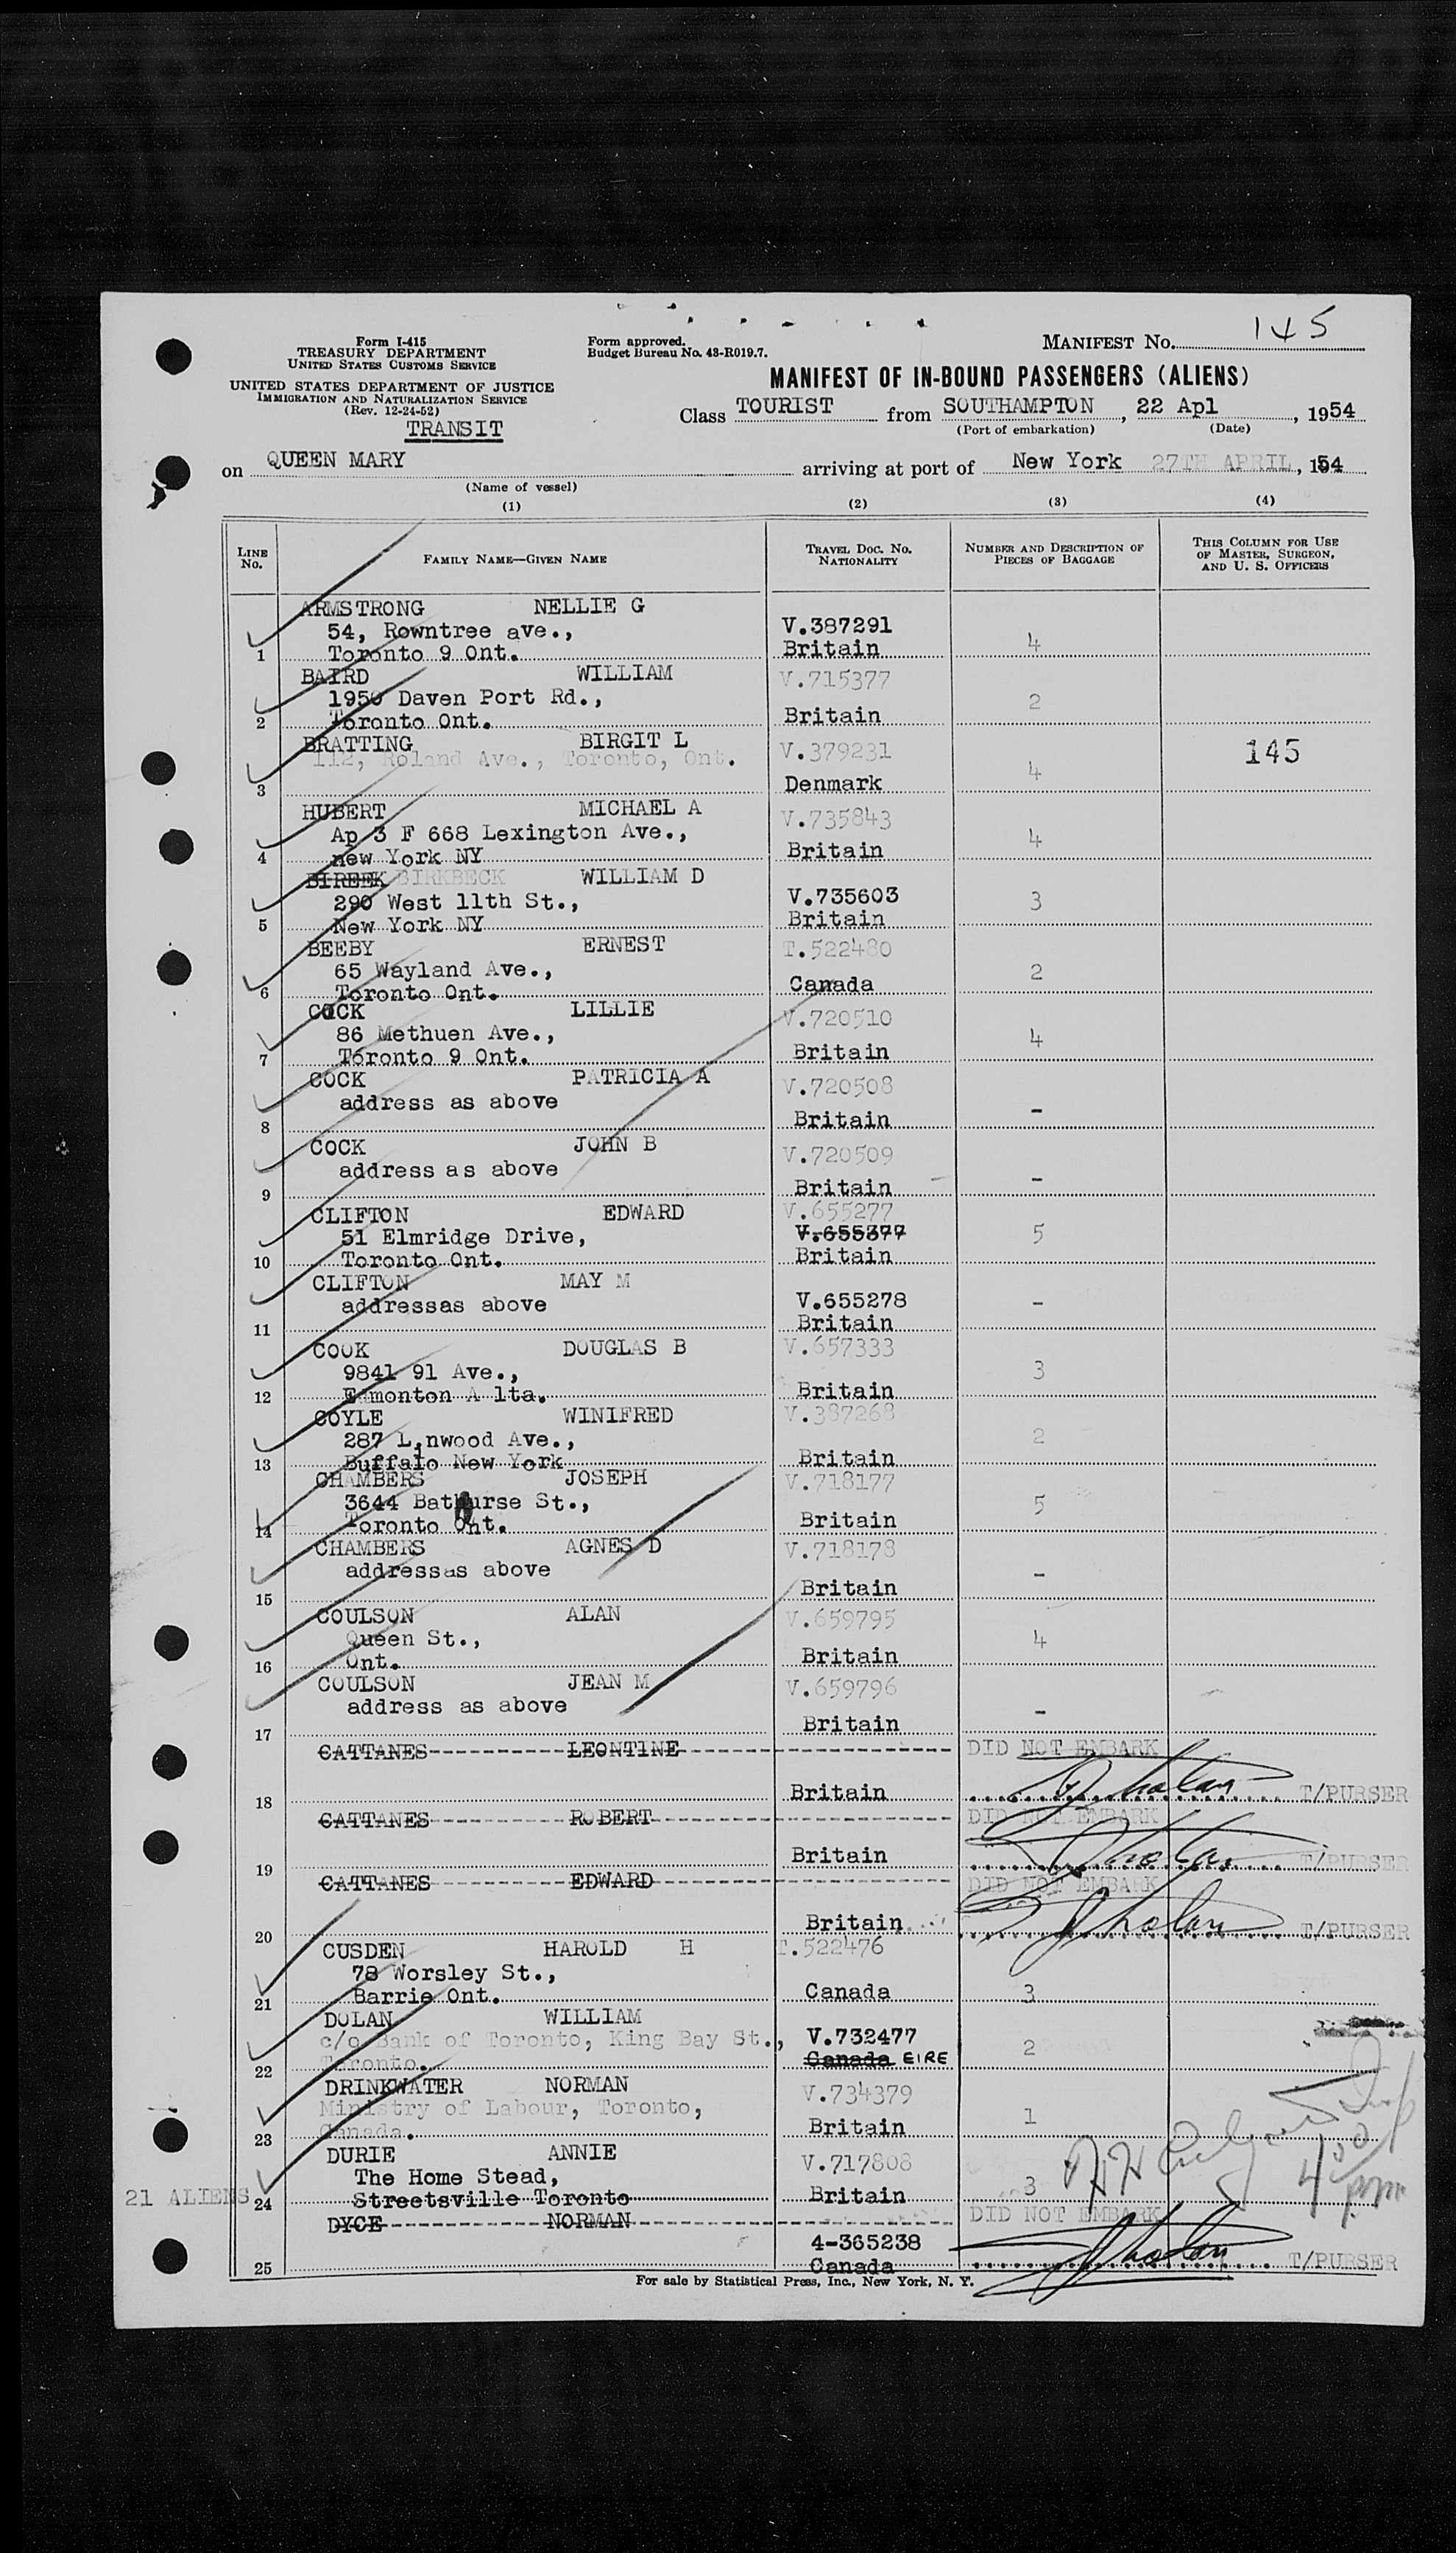 145
Form I-415
TREASURY DEPARTMENT
UNITED STATES CUSTOMS SERVICE
UNITED STATES DEPARTMENT OF JUSTICE
IMMIGRATION AND NATURALIZATION SERVICE
(Rev. 12-24-52)
TRANSIT
Form approved.
Budget Bureau No. 43-R019.7.
MANIFEST No.
MANIFEST OF IN-BOUND PASSENGERS (ALIENS)
Class TOURIST from SOUTHAMPTON, 22 Apl, 1954
(Port of embarkation) (Date)
on QUEEN MARY arriving at port of New York 27TH APRIL, 1954
(Name of vessel)
(1) (2) (3) (4)
LINE No. FAMILY NAME—GIVEN NAME TRAVEL DOC. No. NATIONALITY NUMBER AND DESCRIPTION OF PIECES OF BAGGAGE THIS COLUMN FOR USE OF MASTER, SURGEON, AND U. S. OFFICERS
ARMSTRONG NELLIE G
54, Rowntree ave., V.387291
1 Toronto 9 Ont. Britain 4
BAIRD WILLIAM V.715377
1950 Daven Port Rd., 2
2 Toronto Ont. Britain
BRATTING BIRGIT L V.379231 145
112, Roland Ave., Toronto, Ont.
3 Denmark 4
HUBERT MICHAEL A V.735843
Ap 3 F 668 Lexington Ave., 4
4 new York NY Britain
BIREEK BIRKBECK WILLIAM D
290 West 11th St., V.735603 3
5 New York NY Britain
BEEBY ERNEST T.522480
65 Wayland Ave., 2
6 Toronto Ont. Canada
COCK LILLIE V.720510
86 Methuen Ave., 4
7 Toronto 9 Ont. Britain
COCK PATRICIA A V.720508
address as above -
8 Britain
COCK JOHN B V.720509
address as above -
9 Britain
CLIFTON EDWARD V.655277
51 Elmridge Drive, V.655377 5
10 Toronto Ont. Britain
CLIFTON MAY M
addressas above V.655278 -
11 Britain
COOK DOUGLAS B V.657333
9841 91 Ave., 3
12 Edmonton A lta. Britain
COYLE WINIFRED V.387268
287 L,nwood Ave., 2
13 Buffalo New York Britain
CHAMBERS JOSEPH V.718177
3644 Bathurse St., 5
14 Toronto Ont. Britain
CHAMBERS AGNES D V.718178
addressas above -
15 Britain
COULSON ALAN V.659795
Queen St., 4
16 Ont. Britain
COULSON JEAN M V.659796
address as above -
17 Britain
CATTANES LEONTINE DID NOT EMBARK
18 Britain T/PURSER
CATTANES ROBERT DID NOT EMBARK
19 Britain T/PURSER
CATTANES EDWARD DID NOT EMBARK
20 Britain T/PURSER
CUSDEN HAROLD H T.522476
78 Worsley St.,
21 Barrie Ont. Canada 3
DOLAN WILLIAM
c/o Bank of Toronto, King Bay St., V.732477 2
22 Toronto. Canada EIRE
DRINKWATER NORMAN V.734379
Ministry of Labour, Toronto, 1
23 Canada. Britain
DURIE ANNIE V.717808
The Home Stead, 3
21 ALIENS 24 Streetsville Toronto Britain
DYCE NORMAN DID NOT EMBARK
4-365238
25 Canada T/PURSER
For sale by Statistical Press, Inc., New York, N. Y.